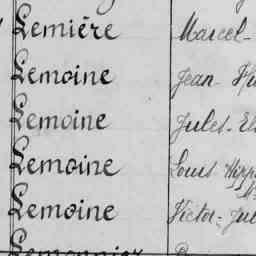 Lemiére Marcel-
Lemoine Jean-
Lemoine Jules-
Lemoine Louis
Lemoine Victor-
Lemonnier